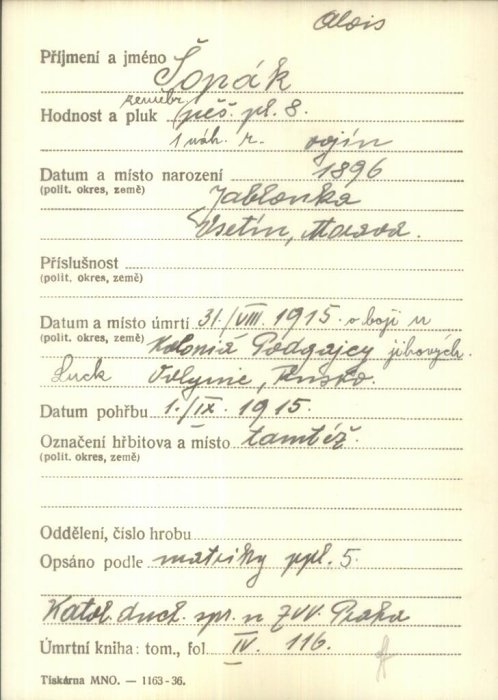 Alois
Příjmení a jméno Šopák
zeměbr.
Hodnost a pluk pěš. pl. 8.
1 náh. r. vojín
Datum a místo narození 1896
(polit. okres, země) Jablonka
Vsetín, Morava.
Příslušnost
(polit. okres, země)
Datum a místo úmrtí 31./VIII. 1915. v boji u
(polit. okres, země) Koloniá Podgajcy jihových.
Luck Volynie, Rusko.
Datum pohřbu 1./IX. 1915.
Označení hřbitova a místo tamtéž.
(polit. okres, země)
Oddělení, číslo hrobu
Opsáno podle matriky ppl. 5.
Katol. duch. spr. u ZVV. Praha
Úmrtní kniha: tom., fol. IV. 116.
Tiskárna MNO. — 1163-36.